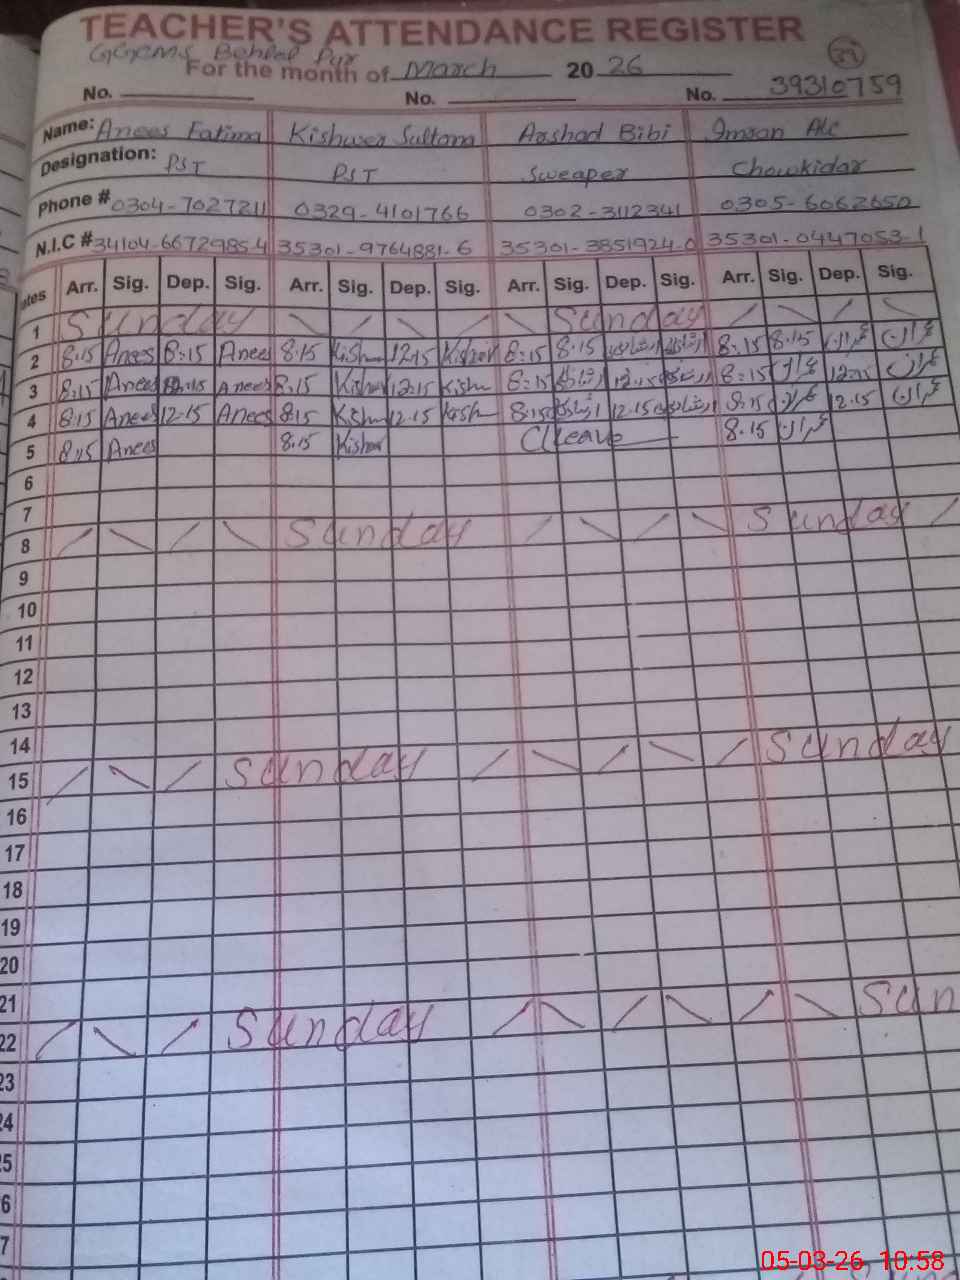 TEACHER'S ATTENDANCE REGISTER
GGCMS Behlol Pur
For the month of March 20 26
29
No. No. No. 39310759
Name: Anees Fatima Kishwer Sultana Arshad Bibi Imran Ali
Designation: PST PST Sweaper Chowkidar
Phone # 0304-7027211 0329-4101766 0302-3112341 0305-6062650
N.I.C # 34104-6672985-4 35301-9764881-6 35301-3851924-0 35301-0447053-1
Arr. Sig. Dep. Sig. Arr. Sig. Dep. Sig. Arr. Sig. Dep. Sig. Arr. Sig. Dep. Sig.
1 Sunday Sunday
2 8.15 Anees 8:15 Anees 8.15 Kishwer 12.15 Kishwer 8:15 8.15 8.15 8.15 عمران عمران
3 8:15 Anees 12.15 Anees 8.15 Kishwer 12.15 Kishw 8:15 12.15 8:15 عمران 12.15 عمران
4 8.15 Anees 12-15 Anees 8.15 Kishw 12.15 Kish 8.15 12.15 8.15 عمران 12.15 عمران
5 8:15 Anees 8.15 Kishwer C leave 8.15 عمران
6
7
8 Sunday Sunday
9
10
11
12
13
14
15 Sunday Sunday
16
17
18
19
20
21
22 Sunday Sun
23
24
25
6
7
05-03-26 10:58